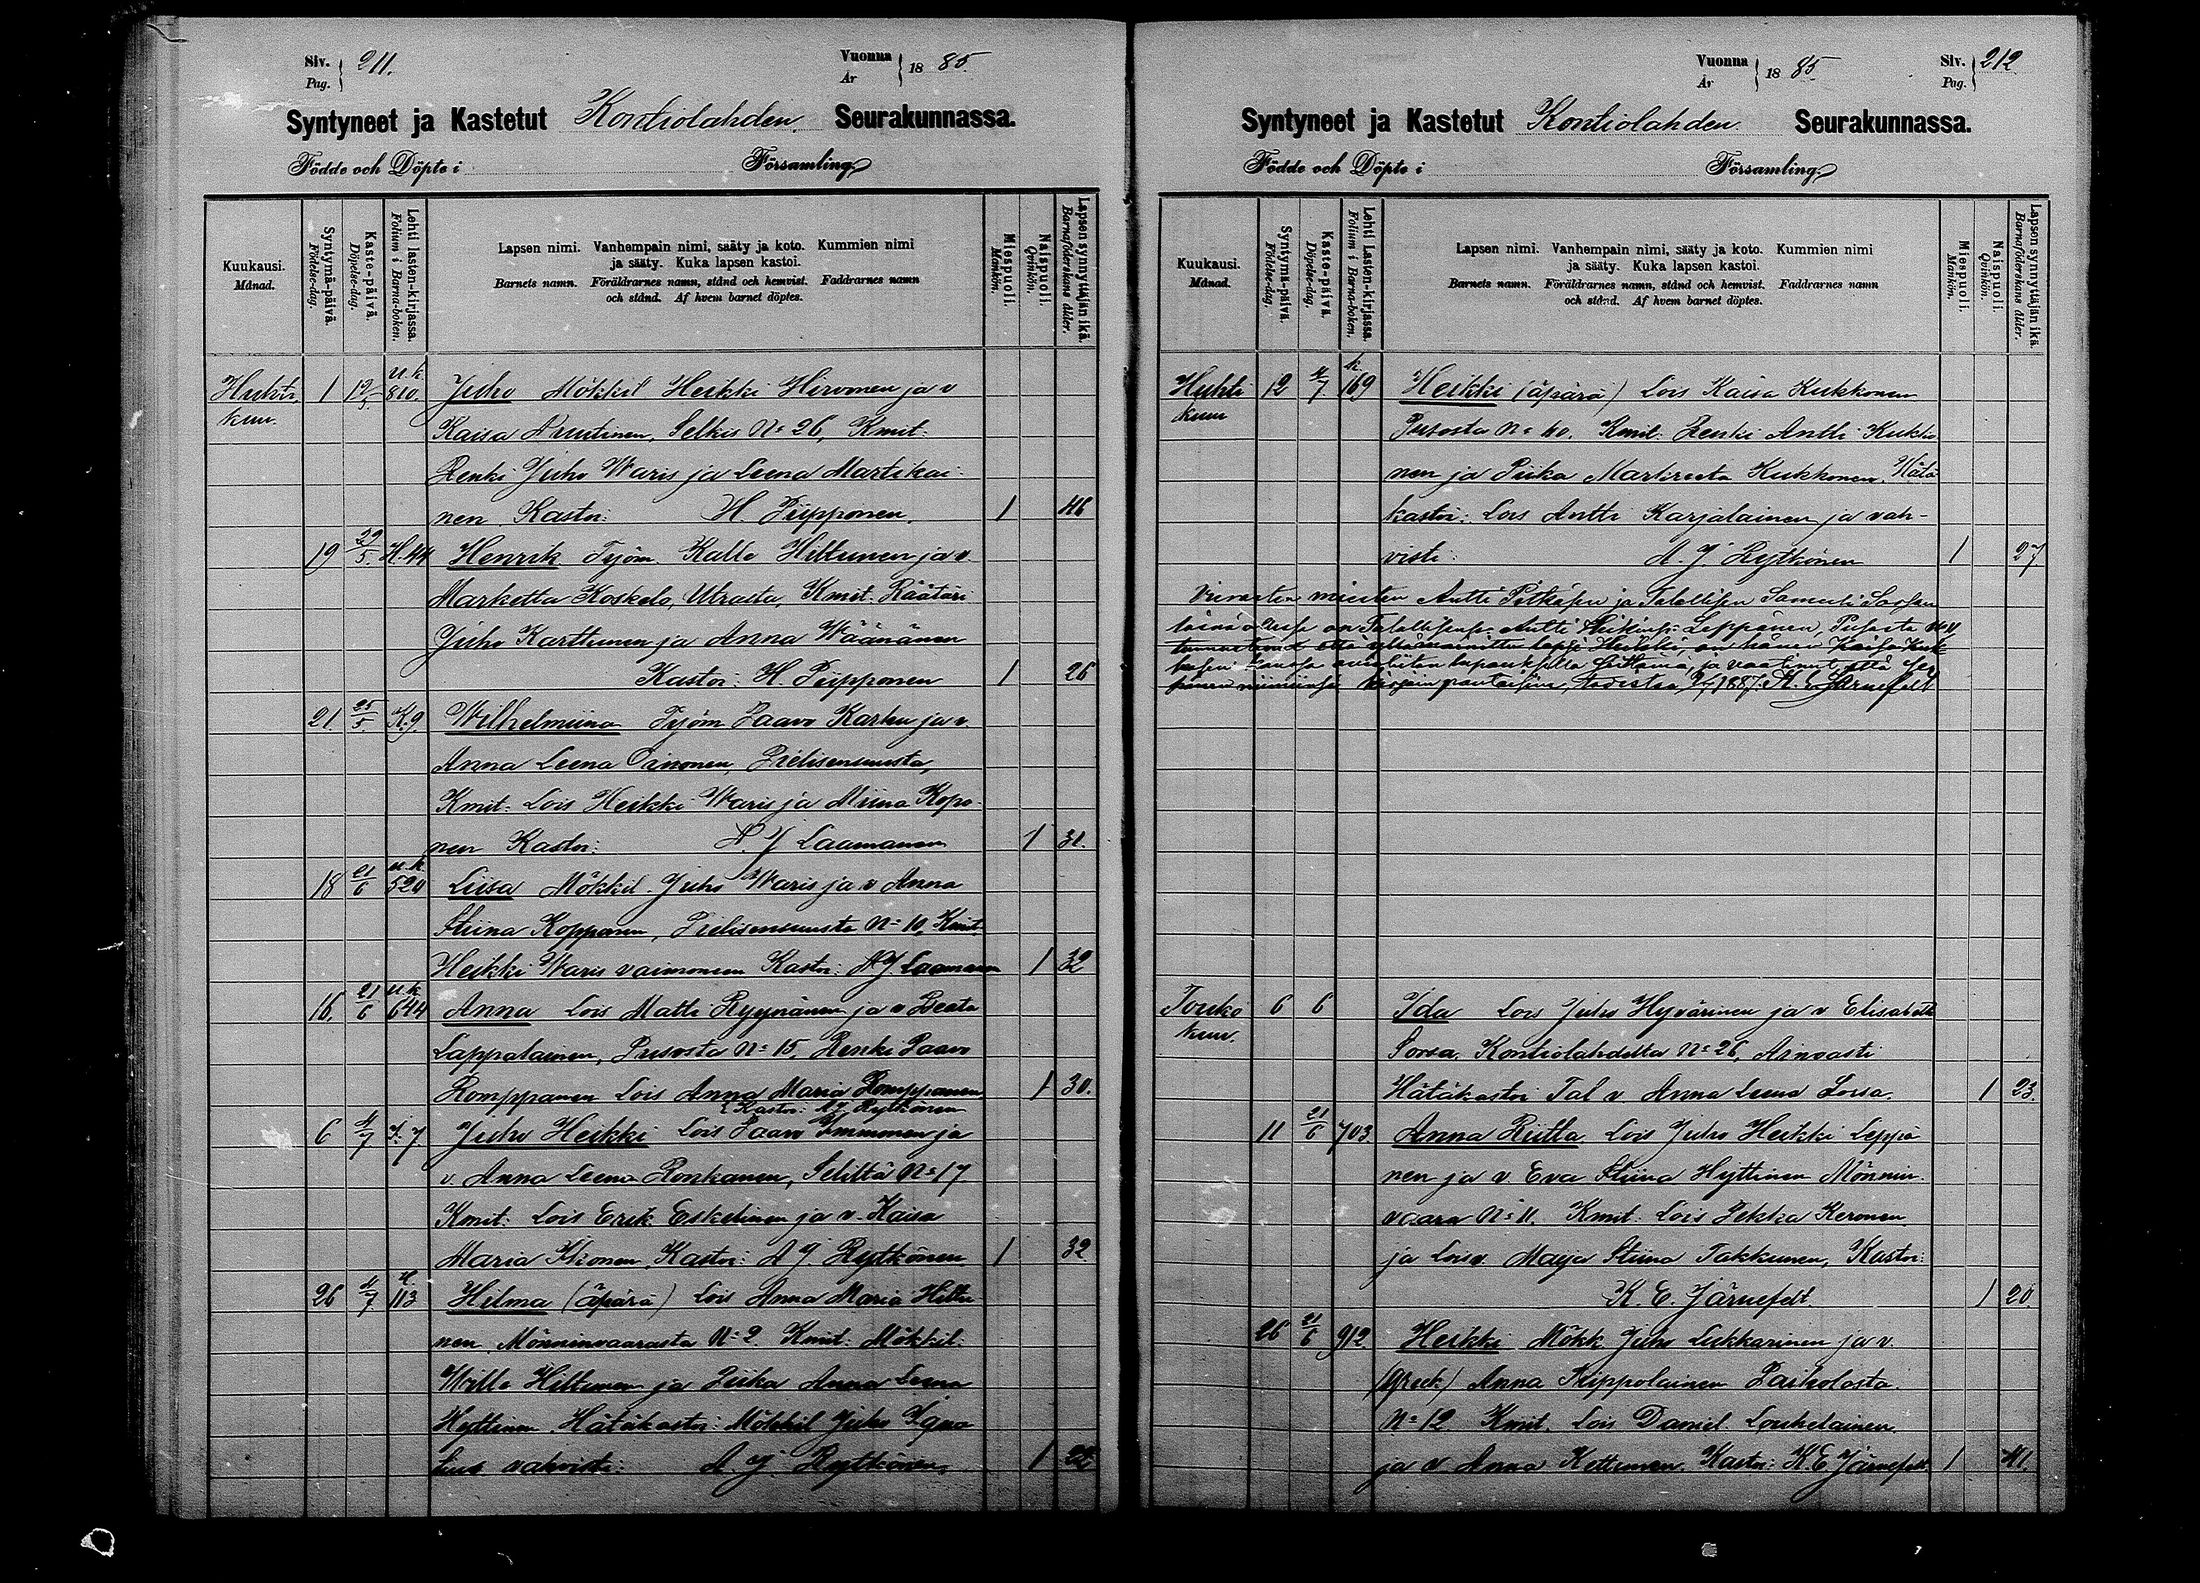 Siv. Pag. 211. Vuonna År 1885.
Syntyneet ja Kastetut Kontiolahden Seurakunnassa.
Födde och Döpte i Församling
Kuukausi. Månad.
Syntymä-päivä. Födelse-dag.
Kaste-päivä. Döpelse-dag.
Lehti lasten-kirjassa. Folium i Barna-boken.
Lapsen nimi. Vanhempain nimi, sääty ja koto. Kummien nimi
ja sääty. Kuka lapsen kastoi.
Barnets namn. Föräldrarnes namn, stånd och hemvist. Faddrarnes namn
och stånd. Af hvem barnet döptes.
Miespuoli. Mankön.
Naispuoli. Qvinkön.
Lapsen synnyttäjän ikä. Barnaföderskans ålder.
Huhti 1 12/5 u.k. 810. Juho Mökkil Heikki Hirvonen ja v
kuu. Kaisa Nuutinen, Selkis No 26, Kmit:
Renki Juho Waris ja Leena Martikai-
nen Kastoi: H. Piipponen. 1 46
19 29/5. H.44 Henrik Työm. Kalle Hiltunen ja v.
Marketta Koskelo, Utraeta, Kmit. Räätäri
Juho Karttunen ja Anna Wäänänen
Kastoi: H. Piipponen 1 26
21. 25/5 K.9. Wilhelmiina Työm. Paavo Karhu ja v.
Anna Leena Oinonen, Pielisensuusta,
Kmit: Lois Heikki Waris ja Miina Kopo-
nen Kastoi: A. J Laamanen 1 31.
18 21/6 u.k. 520 Liisa Mökkil. Juho Waris ja v Anna
Stiina Kopponen, Pielisensuusta No 10, Kmit.
Heikki Waris vaimoneen Kastoi: A J Laamanen 1 32
16. 21/6 u.k. 644 Anna Lois Matti Ryynänen ja v Beata
Lappalainen, Pusosta No 15. Renki Paavo
Romppanen Lois Anna Maria Romppanen 1 30.
Kastoi: A J Rytkönen
6 4/7 I. 7 Juho Heikki Lois Paavo Immonen ja
v. Anna Leena Ronkanen, Seliltä No 17
Kmit: Lois Erik Eskelinen ja v. Kaisa
Maria Ikonen Kastoi: A J. Rytkönen 1 32.
26 4/7 H. 113 Hilma (äpärä) Lois Anna Maria Hiltu
nen, Mönninvaarasta No 2. Kmit: Mökkil.
Wille Hiltunen ja Piika Anna Leena
Hyttinen. Hätäkastoi: Mökkil Juho Igna
tius vahvisti: A J. Rytkönen. 1
Vuonna År 1885. Siv. Pag. 212.
Syntyneet ja Kastetut Kontiolahden Seurakunnassa.
Födde och Döpte i Församling
Kuukausi. Månad.
Syntymä-päivä. Födelse-dag.
Kaste-päivä. Döpelse-dag.
Lehti Lasten-kirjassa. Folium i Barna-boken.
Lapsen nimi. Vanhempain nimi, sääty ja koto. Kummien nimi
ja sääty. Kuka lapsen kastoi.
Barnets namn. Föräldrarnes namn, stånd och hemvist. Faddrarnes namn
och stånd. Af hvem barnet döptes.
Miespuoli. Mankön.
Naispuoli. Qvinkön.
Lapsen synnyttäjän ikä. Barnaföderskans ålder.
Huhti 12 4/7. k 169 Heikki (äpärä) Lois Kaisa Kukkonen
kuu Pusosta No 40. Kmit: Renki Antti Kukko
nen ja Piika Martireeta Kukkonen. Hätä
kastoi: Lois Antti Karjalainen ja vah-
visti: A. J Rytkönen 1 27
miesten Antti Pitkäsen ja Talollisen Samuli Sorsan
läsnä on Antti Leppänen, Pusosta
tunnustanut että lapsi Heikki, on hänen Kaisa Kuk
kosen kanssa ja vaatinut että
1887. Järnefelt
Touko 6 6 Ida Lois Juho Hyvärinen ja v Elisabeth
kuu. Sorsa, Kontiolahdelta No 26, Ainoasti
Hätäkastoi Tal v. Anna Leena Sorsa. 1 23.
11 21/6 703 Anna Riitta Lois Juho Heikki Leppä
nen ja v. Eva Stiina Hyttinen Mönnin-
vaara No 11. Kmit: Lois Pekka Keronen
ja Loisv. Maja Stiina Takkunen, Kastoi:
K. E. Järnefelt. 1 20.
26 21/6 912. Heikki Mökk Juho Liukkarinen ja v.
(Grek) Anna Piippolainen Paiholasta.
No 12. Kmit. Lois Daniel Louhelainen
ja v. Anna Kettunen. Kastoi: K. E Järnefelt 1 41.